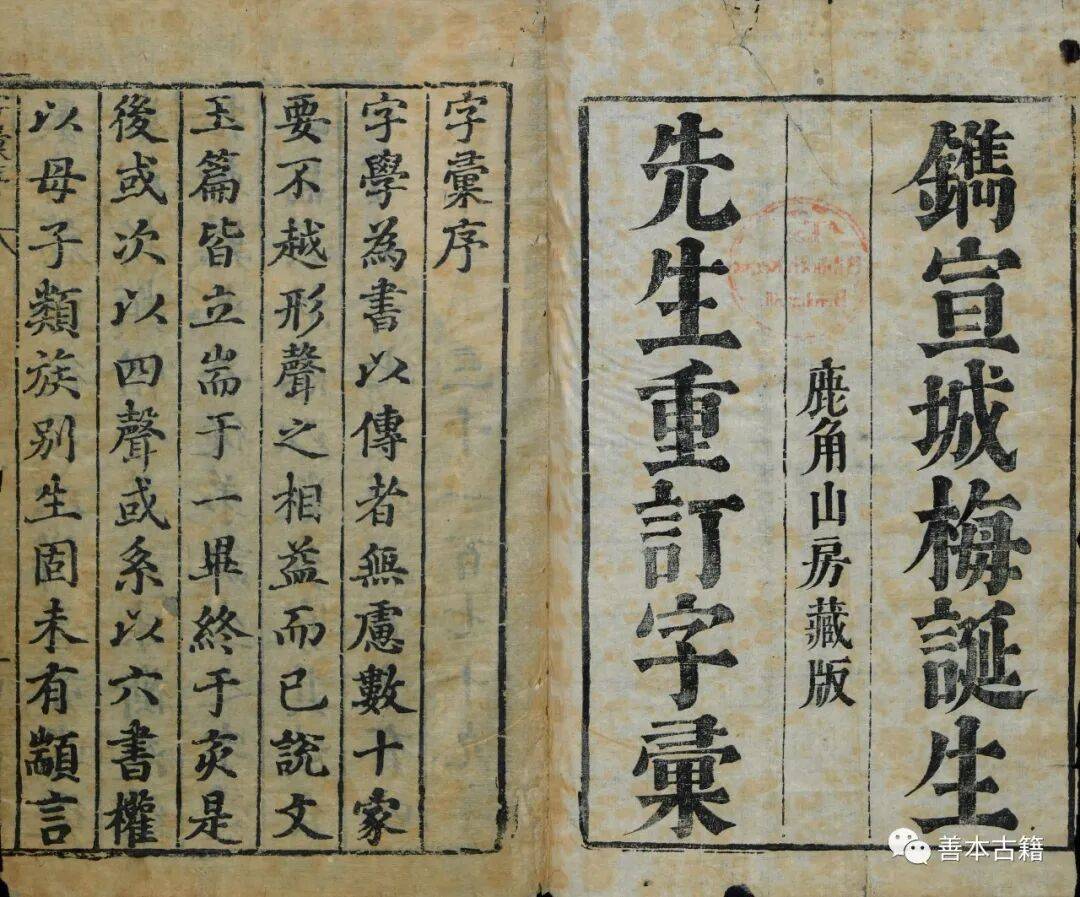 鐫宣城梅誕生
鹿角山房藏版
先生重訂字彙
字彙序
字學為書以傳者無慮數十家
要不越形聲之相益而已說文
玉篇皆立耑于一畢終于亥是
後或次以四聲或系以六書權
以母子類族別生固未有顓言
善本古籍